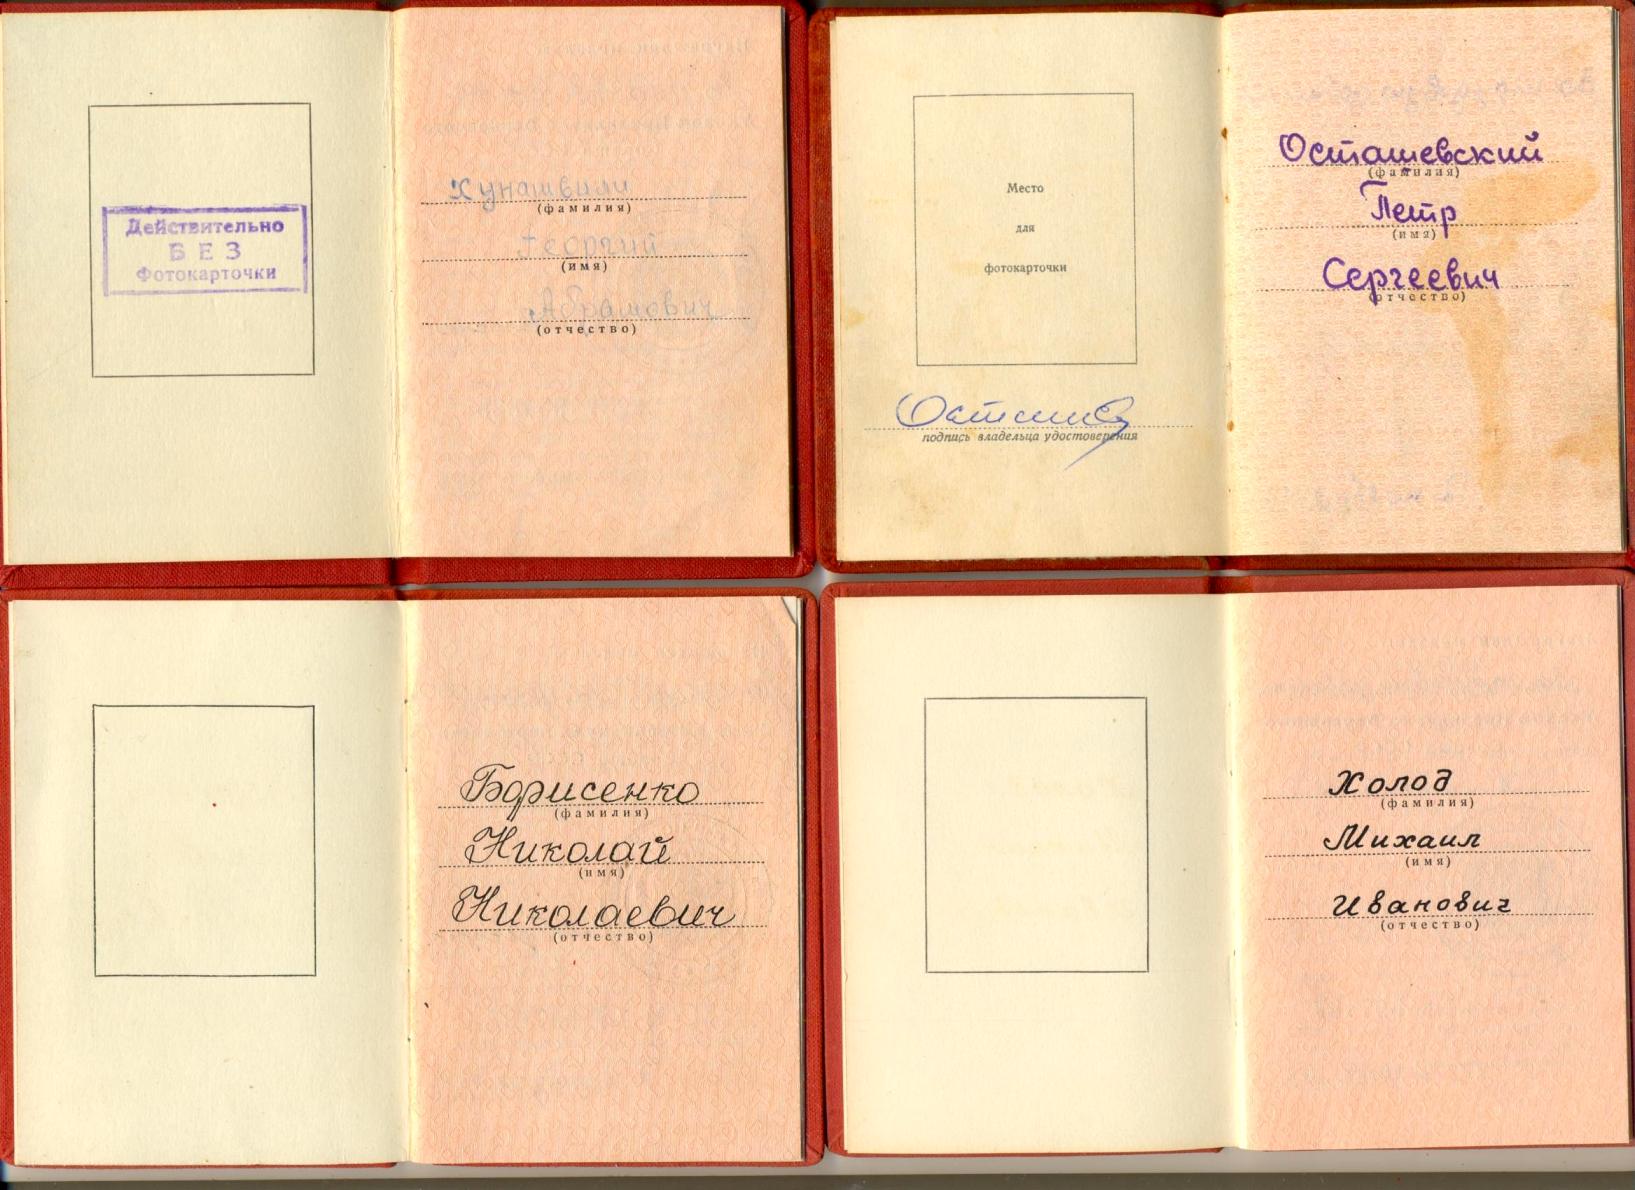 Действительно
БЕЗ
Фотокарточки
Хунашвили
(фамилия)
Георгий
(имя)
Абрамович
(отчество)
Место
для
фотокарточки
подпись владельца удостоверения
Осташевский
(фамилия)
Петр
(имя)
Сергеевич
(отчество)
Борисенко
(фамилия)
Николай
(имя)
Николаевич
(отчество)
Холод
(фамилия)
Михаил
(имя)
Иванович
(отчество)